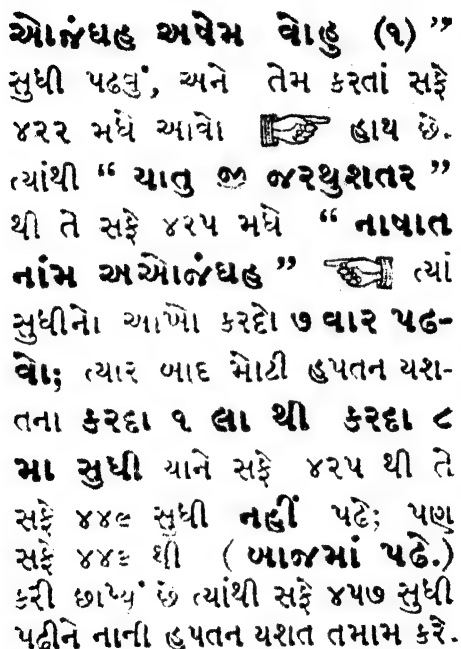 ઓજંઘહ અષેમ વોહુ (૧) ”
સુધી પઢવું, અને તેમ કરતાં સફે
૪૨૨ મધે આવો હાથ છે.
ત્યાંથી “ યાતુ જી જરથુશતર ”
થી તે સફે ૪૨૫ મધે “ નાષાત
નાંમ અઓજંઘહ ” ત્યાં
સુધીનો આખો કરદો ૭ વાર પઢ-
વો; ત્યાર બાદ મોટી હપતન યશ-
તના કરદા ૧ લા થી કરદા ૮
મા સુધી યાને સફે ૪૨૫ થી તે
સફે ૪૪૯ સુધી નહીં પઢે; પણ
સફે ૪૪૯ થી ( બાજમાં પઢે.)
કરી છાપ્યું છે ત્યાંથી સફે ૪૫૭ સુધી
પઢીને નાની હપતન યશત તમામ કરે.